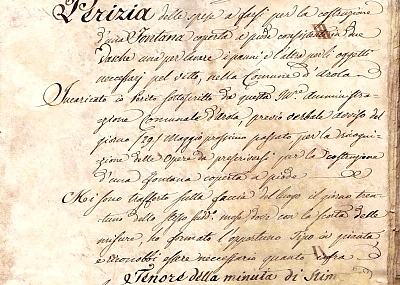 Perizia delle spese a farsi per la costruzione
d'una Fontana coperta a piode consistente in due
vasche una per lavare i panni e l'altra per li oggetti
necessarj pel vitto, nella Comune d'Arola
Incaricato io Perito sottoscritto da questa Ill.e Amministra-
zione Comunale d'Arola, previo verbale avviso del
giorno 29 Maggio prossimo passato per la ricogni-
zione delle Opere da prescriversi per la costruzione
d'una fontana coperta a piode
Mi sono trasferto sulla faccia del luogo il giorno tren-
tuno dello stesso mese dove con la scorta delle
misure ho formato l'opportuno Tipo in pianta
e riconobbi essere necessario quanto infra
Tenore della minuta di Stim